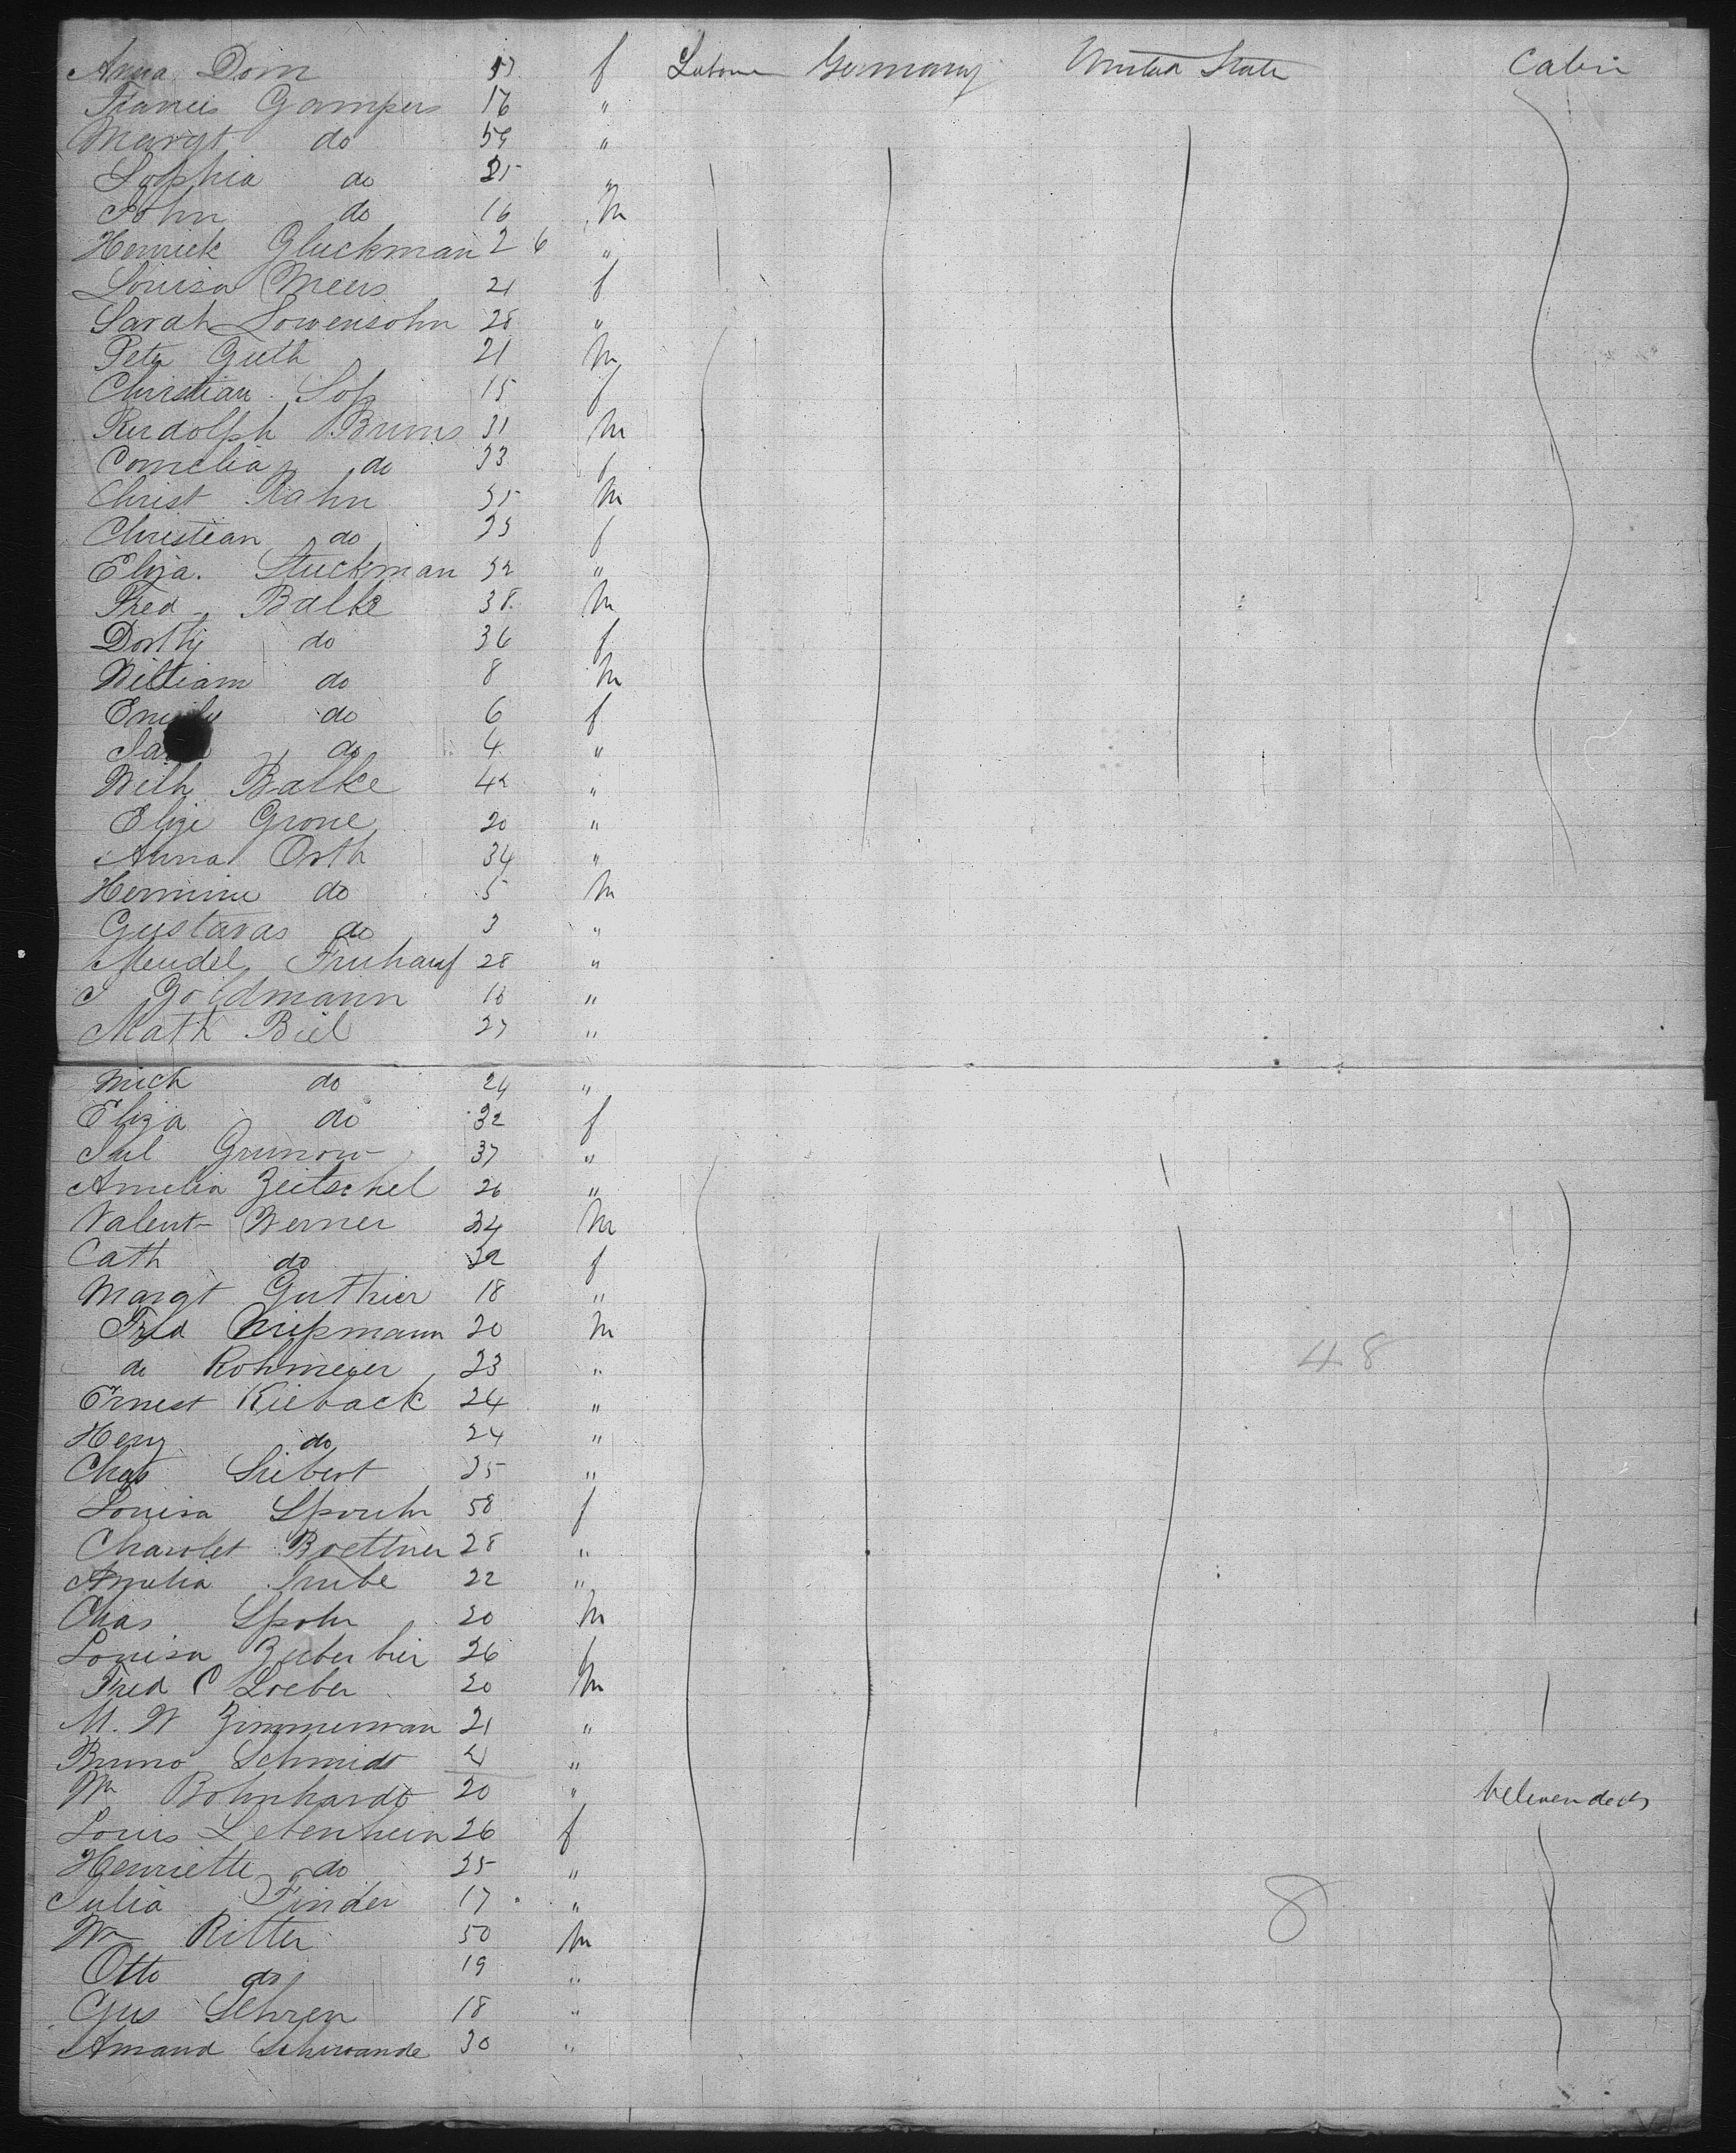 Anna Dorn 57 f Labour Germany United State Cabin
Francis Gampers 16 "
Margt do 59 "
Sophia do 25 "
John do 16 M
Henrick Gluckman 26 "
Louisa Meers 21 f
Sarah Lowensohn 28 "
Peter Guth 21 M
Christian Sop 15 f
Rudolph Bruns 31 M
Cornelia do 33 f
Christ Rahn 35 M
Christian do 25 f
Eliza. Stuckman 32 "
Fred Balke 38 M
Dorthy do 36 f
William do 8 M
Emily do 6 f
do 4 "
Wilh Balke 42 "
Elize Grone 20 "
Anna Orth 34 "
Hermine do 5 M
Gustavas do 3 "
Mendel Fruhauf 28 "
J Goldmann 18 "
Math Biel 27 "
Mich do 24 "
Eliza do 32 f
Jul Grunow 37 "
Amelia Zeitschel 26 "
Valent Werner 34 M
Cath do 32 f
Margt Guthier 18 "
Fred 20 M
do Rohmeier 23 " 48
Ernest Kieback 24 "
Heny do 24 "
Chas Siebert 25 "
Louisa Spouhr 58 f
Charolet Boettner 28 "
Amelia Trube 22 "
Chas Spohr 20 M
Louisa Bieberbier 26 f
Fred C Loeber 20 M
M. W Zimmerman 21 "
Bruno Schmidt 21 "
Wm Bohnhardt 20 " between decks
Louis Letenhein 26 f
Henriette do 25 "
Julia Finder 17 " 8
Wm Ritter 50 M
Otto do 19 "
Gus Sehren 18 "
Amand Schwande 30 "